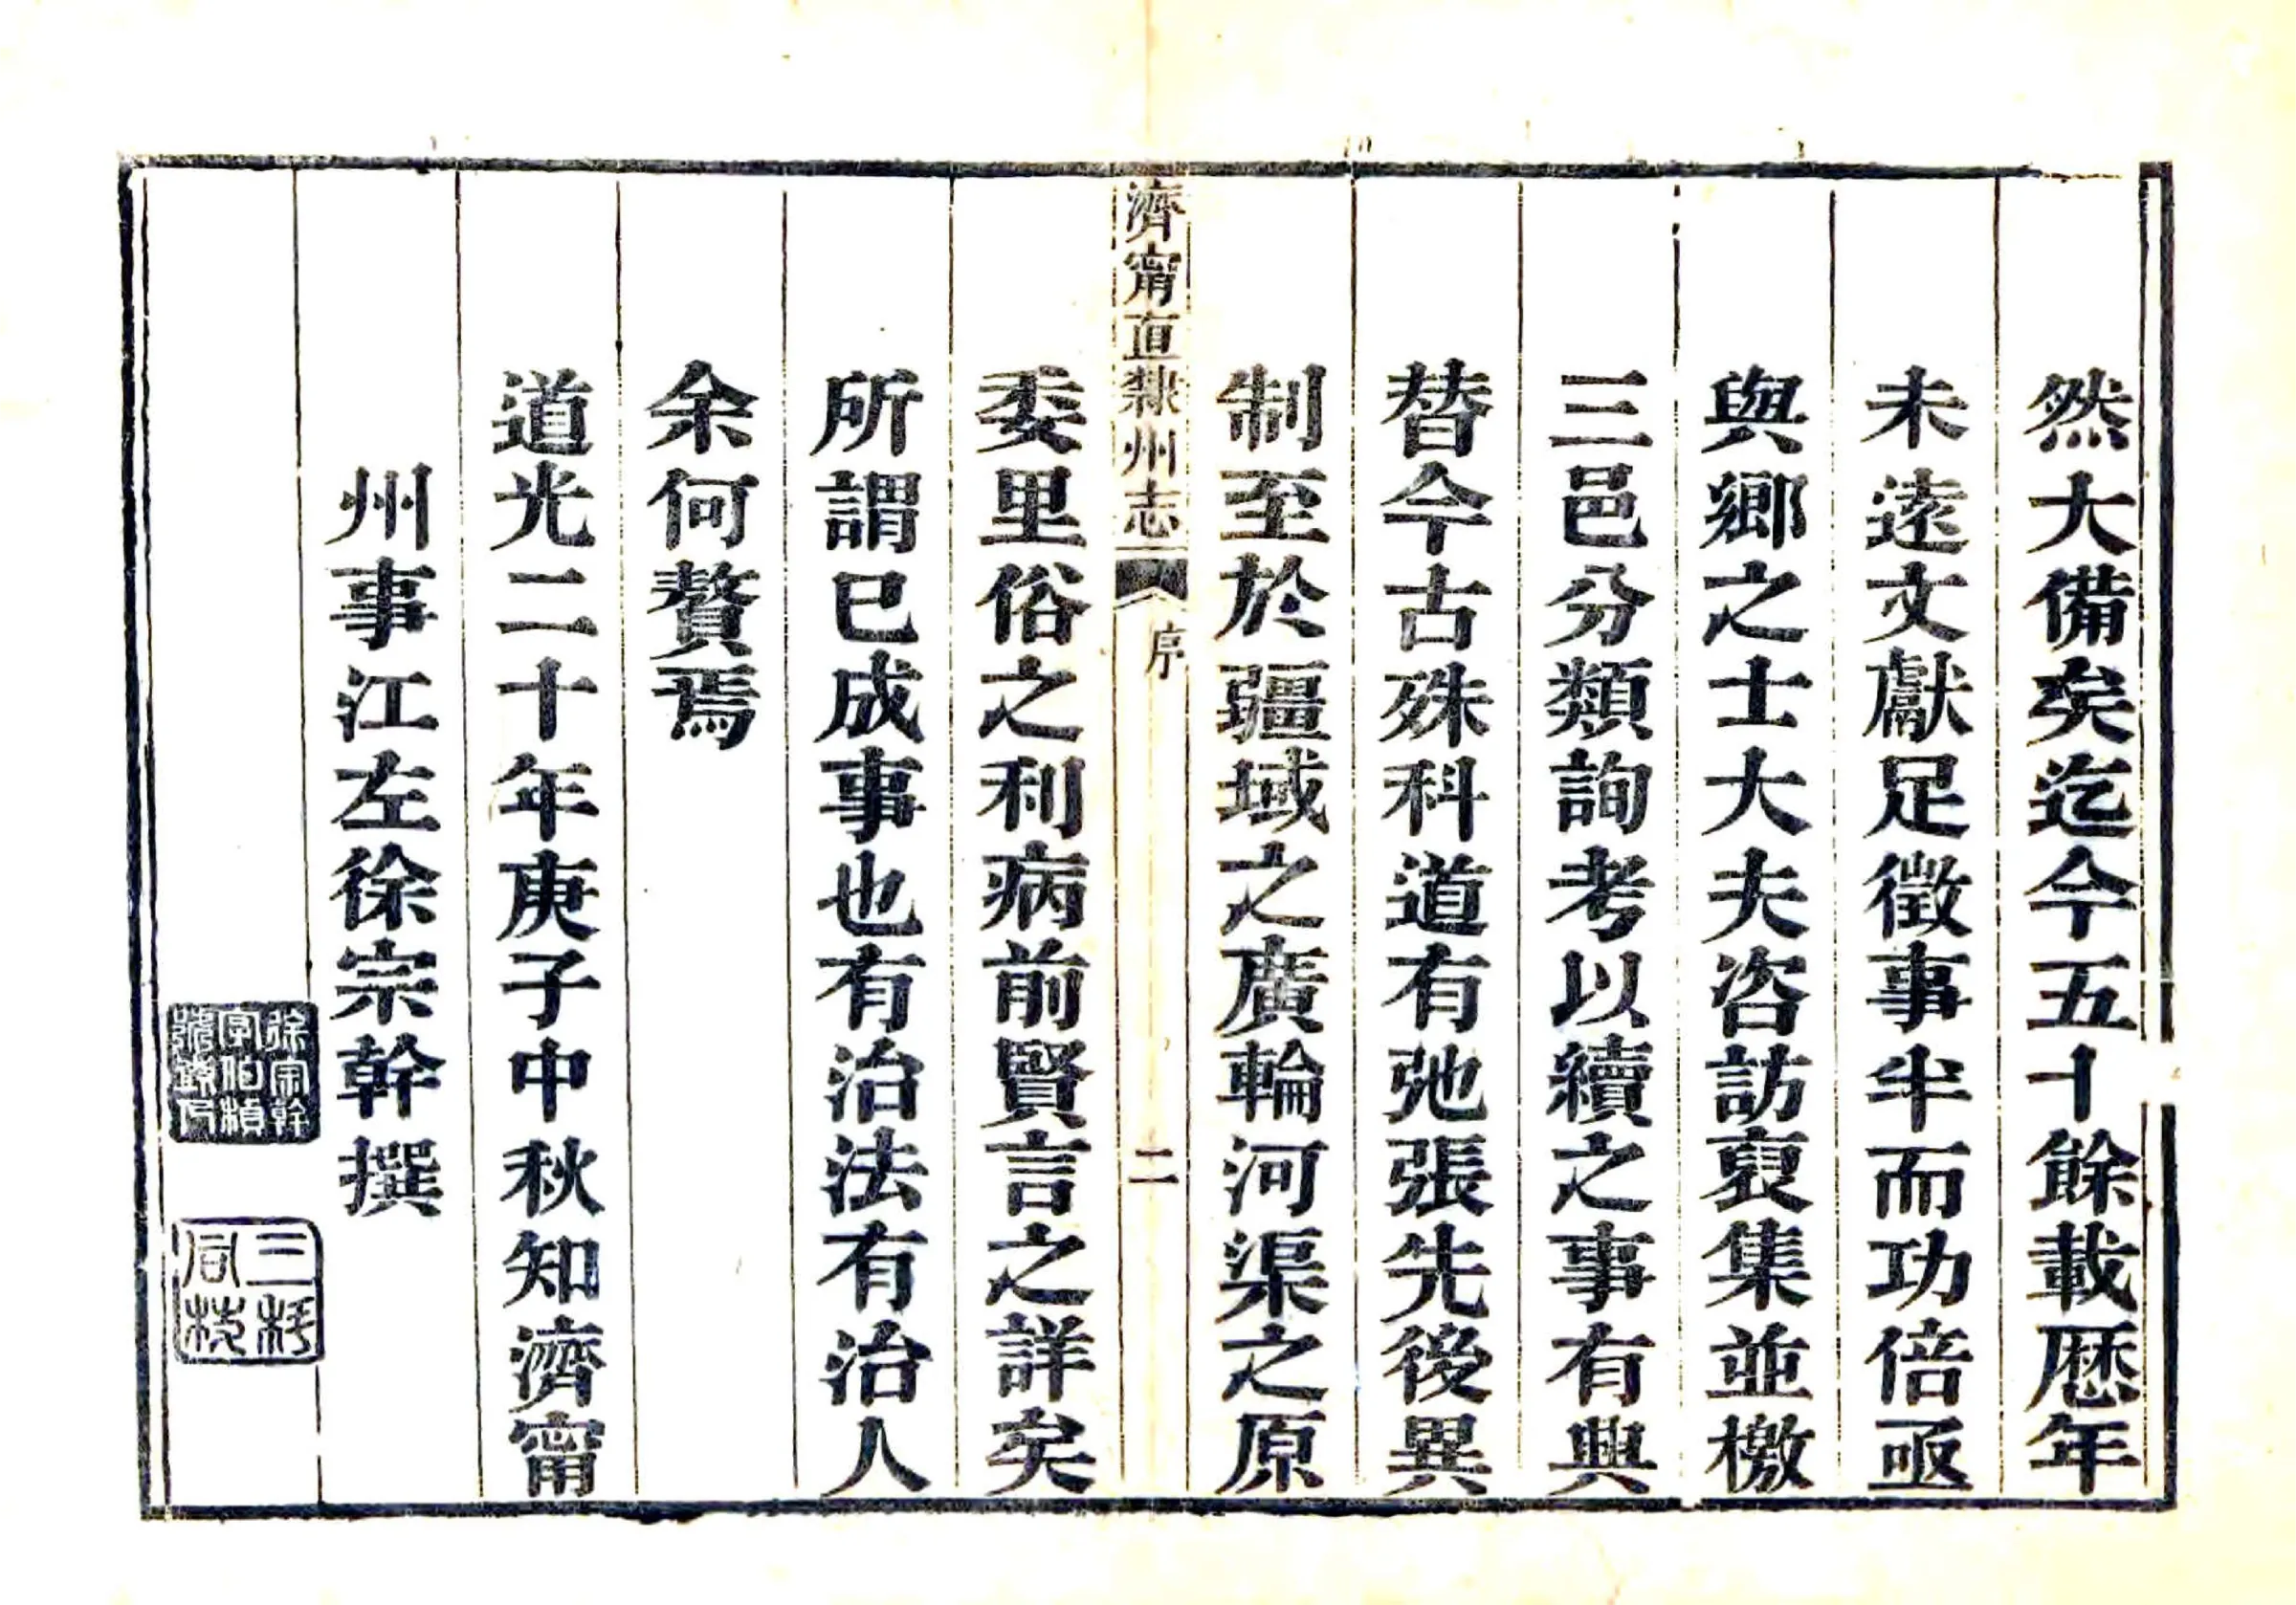 然大備矣迄今五十餘載歷年
未遠文獻足徵事半而功倍亟
與鄉之士大夫咨訪裒集並檄
三邑分類詢考以續之事有興
替今古殊科道有弛張先後異
制至於疆域之廣輪河渠之原
濟甯直隸州志
序
二
委里俗之利病前賢言之詳矣
所謂已成事也有治法有治人
余何贅焉
道光二十年庚子中秋知濟甯
州事江左徐宗幹撰
徐宗幹
字伯楨